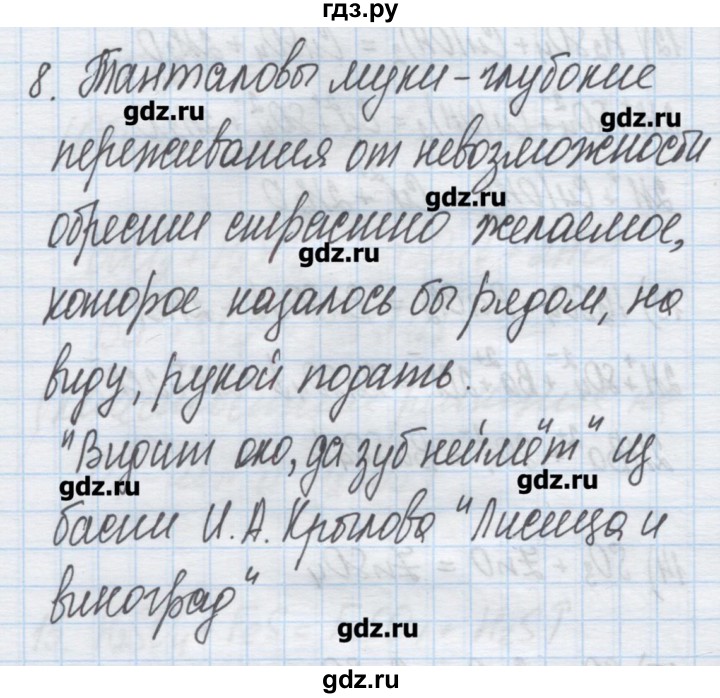 гдз.ру
8. Танталовы муки - глубокие
gdz.ru
gdz.ru
переживания от невозможности
gdz.ru
обрести страстно желаемое,
gdz.ru
которое казалось бы рядом, на
виду, рукой подать.
"Видит око, да зуб неймёт" из
gdz.ru
gdz.ru
басни И.А. Крылова "Лисица и
виноград"
gdz.ru
gdz.ru